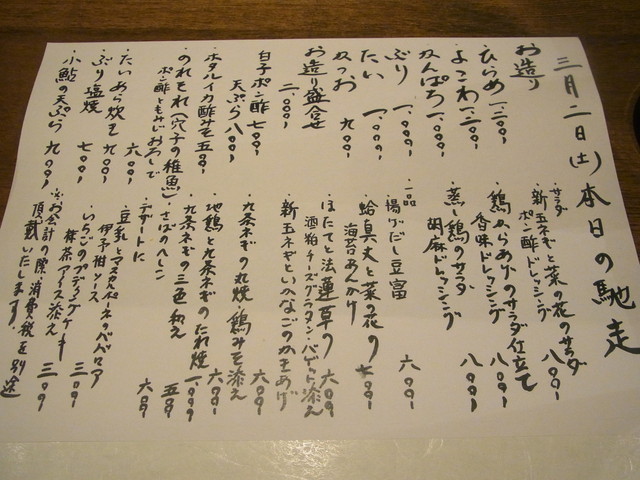 三月二日(土)本日の馳走
お造り
・ひらめ 一、二〇〇-
・よこわ 一、二〇〇-
・かんぱち 一、〇〇〇-
・ぶり 一、〇〇〇-
・たい 一、〇〇〇-
・かつお 九〇〇-
お造り盛合せ 二、〇〇〇-
・白子ポン酢 七〇〇-
天ぷら 八〇〇-
・ホタルイカ酢みそ 五〇〇-
・のれそれ(穴子の稚魚)
ポン酢ともみじおろしで
・たいあら炊き 六〇〇-
・ぶり塩焼 七〇〇-
・小鮎の天ぷら 九〇〇-
・サラダ
新玉ネギと菜の花のサラダ
ポン酢ドレッシング 八〇〇-
・鶏からあげのサラダ仕立て
香味ドレッシング 八〇〇-
・蒸し鶏のサラダ
胡麻ドレッシング 八〇〇-
・一品
揚げだし豆富 六〇〇-
・蛤真丈と菜の花の
海苔あんかけ 七〇〇-
・ほたてと法蓮草の
酒粕チーズグラタン・バゲット添え 六〇〇-
・新玉ネギといかなごのかきあげ 六〇〇-
・九条ネギの丸焼 鶏みそ添え 六〇〇-
・地鶏と九条ネギのたれ焼 一、〇〇〇-
・九条ネギの三色和え 五〇〇-
・さばのへしこ 六〇〇-
・デザートに
豆乳とマスカルポーネのババロア
伊予柑ソース 三〇〇-
いちごのプディングケーキ
抹茶アイス添え 三〇〇-
※お会計の際、消費税を別途
頂戴いたします。